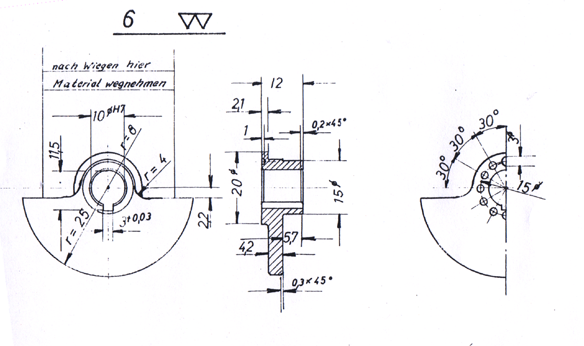 6
nach Wiegen hier
Material wegnehmen
10 ⌀H7
r=8
r=4
11,5
3+0,03
r=25
22
12
2,1
1
0,2×45°
20⌀
15⌀
5,7
4,2
0,3×45°
30°
30°
30°
3⌀
15⌀